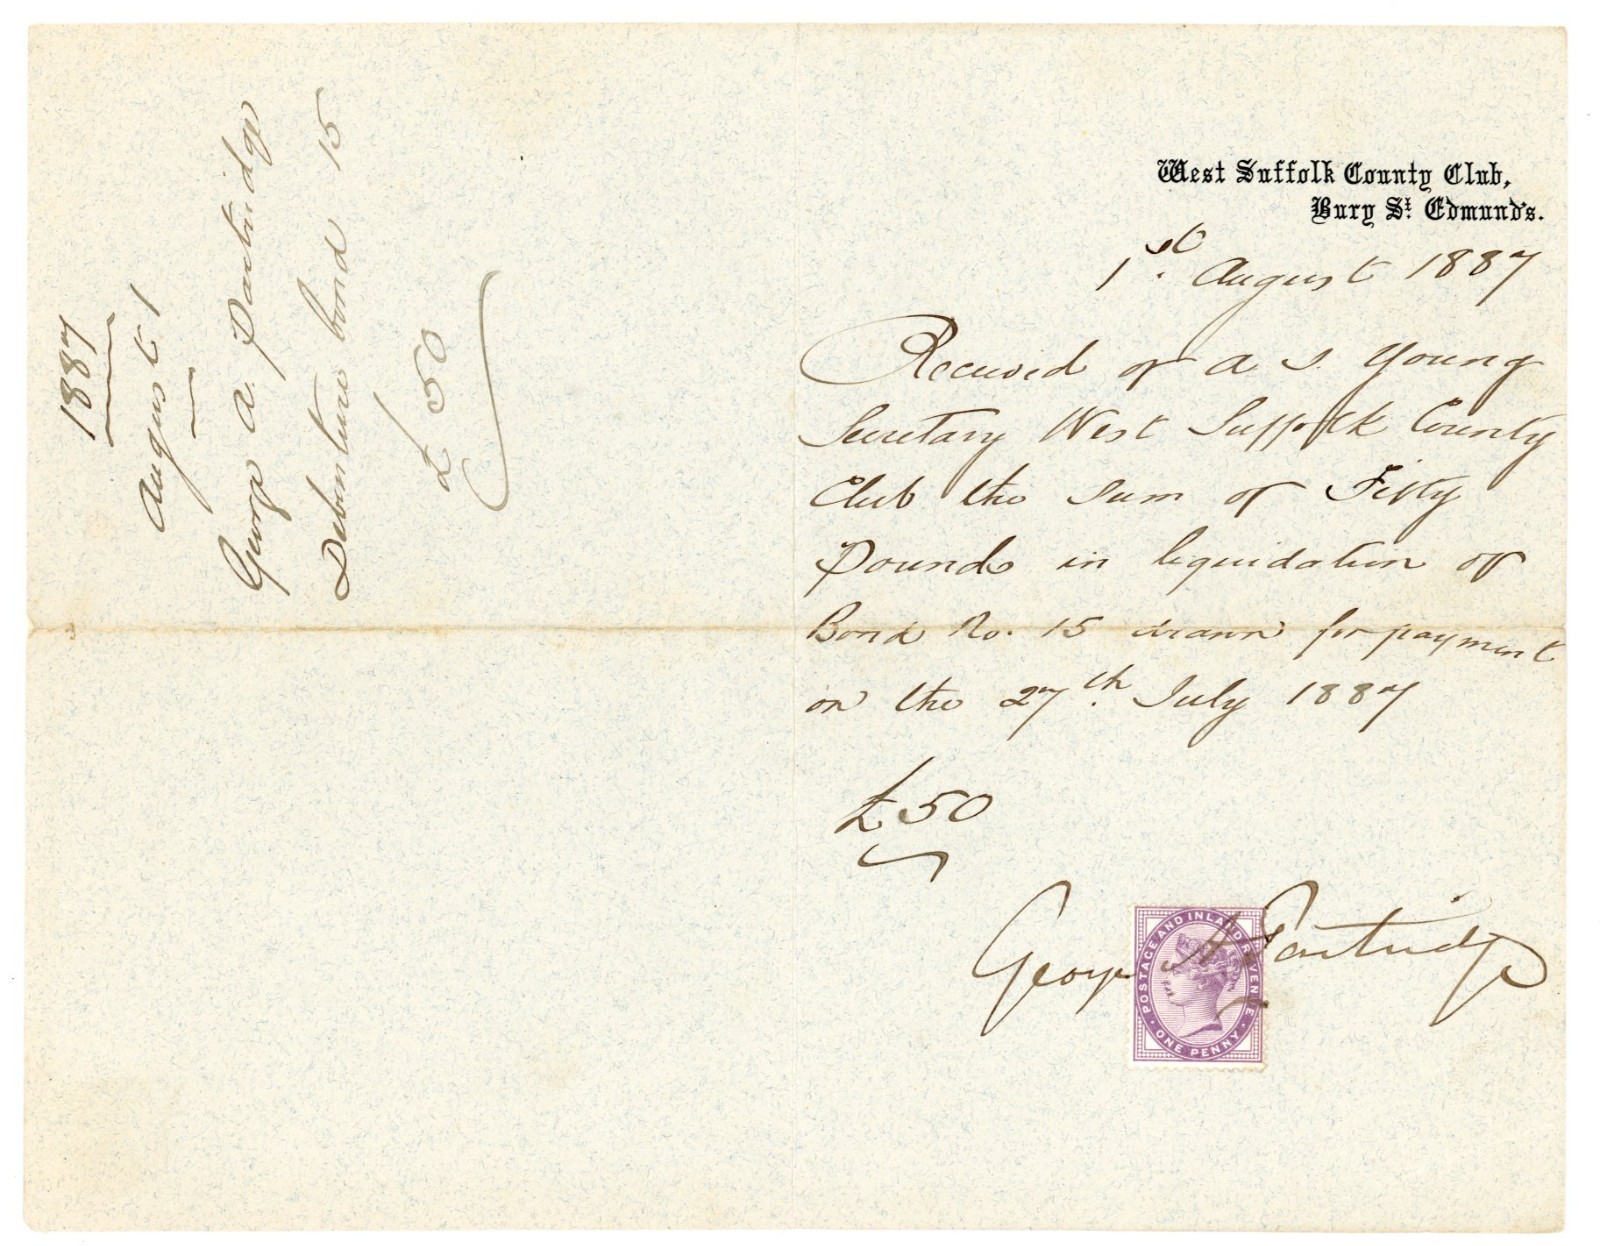 1887
August 1
George A. Partridge
Debenture bond 15
£50
West Suffolk County Club,
Bury St. Edmund's.
1st. August 1887
Received of A S. Young
Secretary West Suffolk County
Club the Sum of Fifty
Pounds in liquidation of
Bond No. 15 drawn for payment
on the 27th. July 1887
£50
George A. Partridge
POSTAGE AND INLAND REVENUE
ONE PENNY